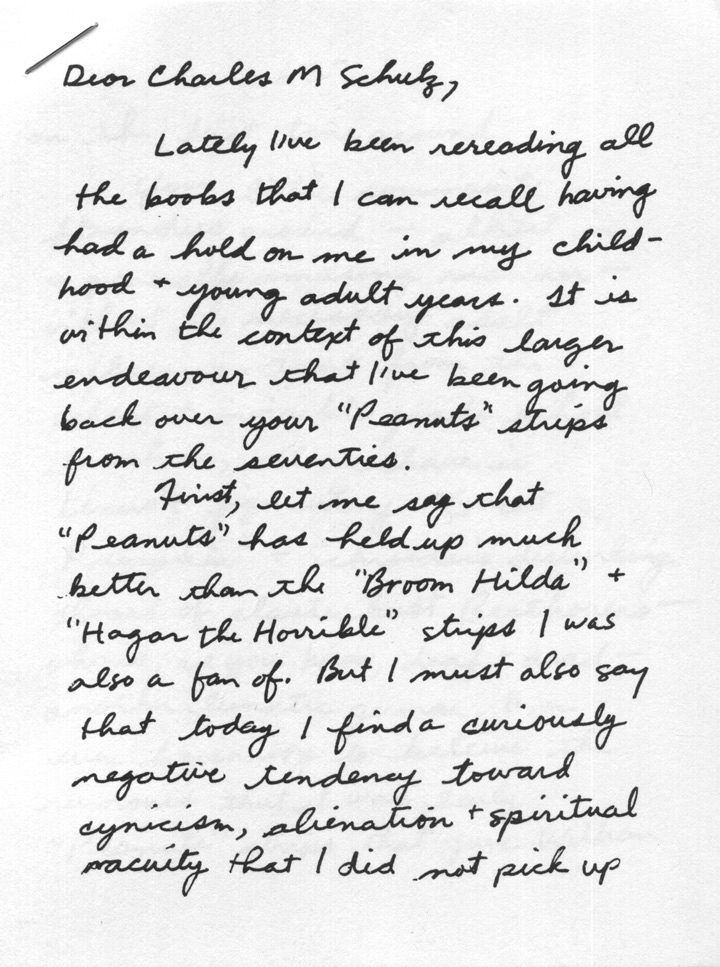 Dear Charles M Schulz,
Lately I've been rereading all
the books that I can recall having
had a hold on me in my child-
hood + young adult years. It is
within the context of this larger
endeavour that I've been going
back over your "Peanuts" strips
from the seventies.
First, let me say that
"Peanuts" has held up much
better than the "Broom Hilda" +
"Hagar the Horrible" strips I was
also a fan of. But I must also say
that today I find a curiously
negative tendency toward
cynicism, alienation + spiritual
vacuity that I did not pick up